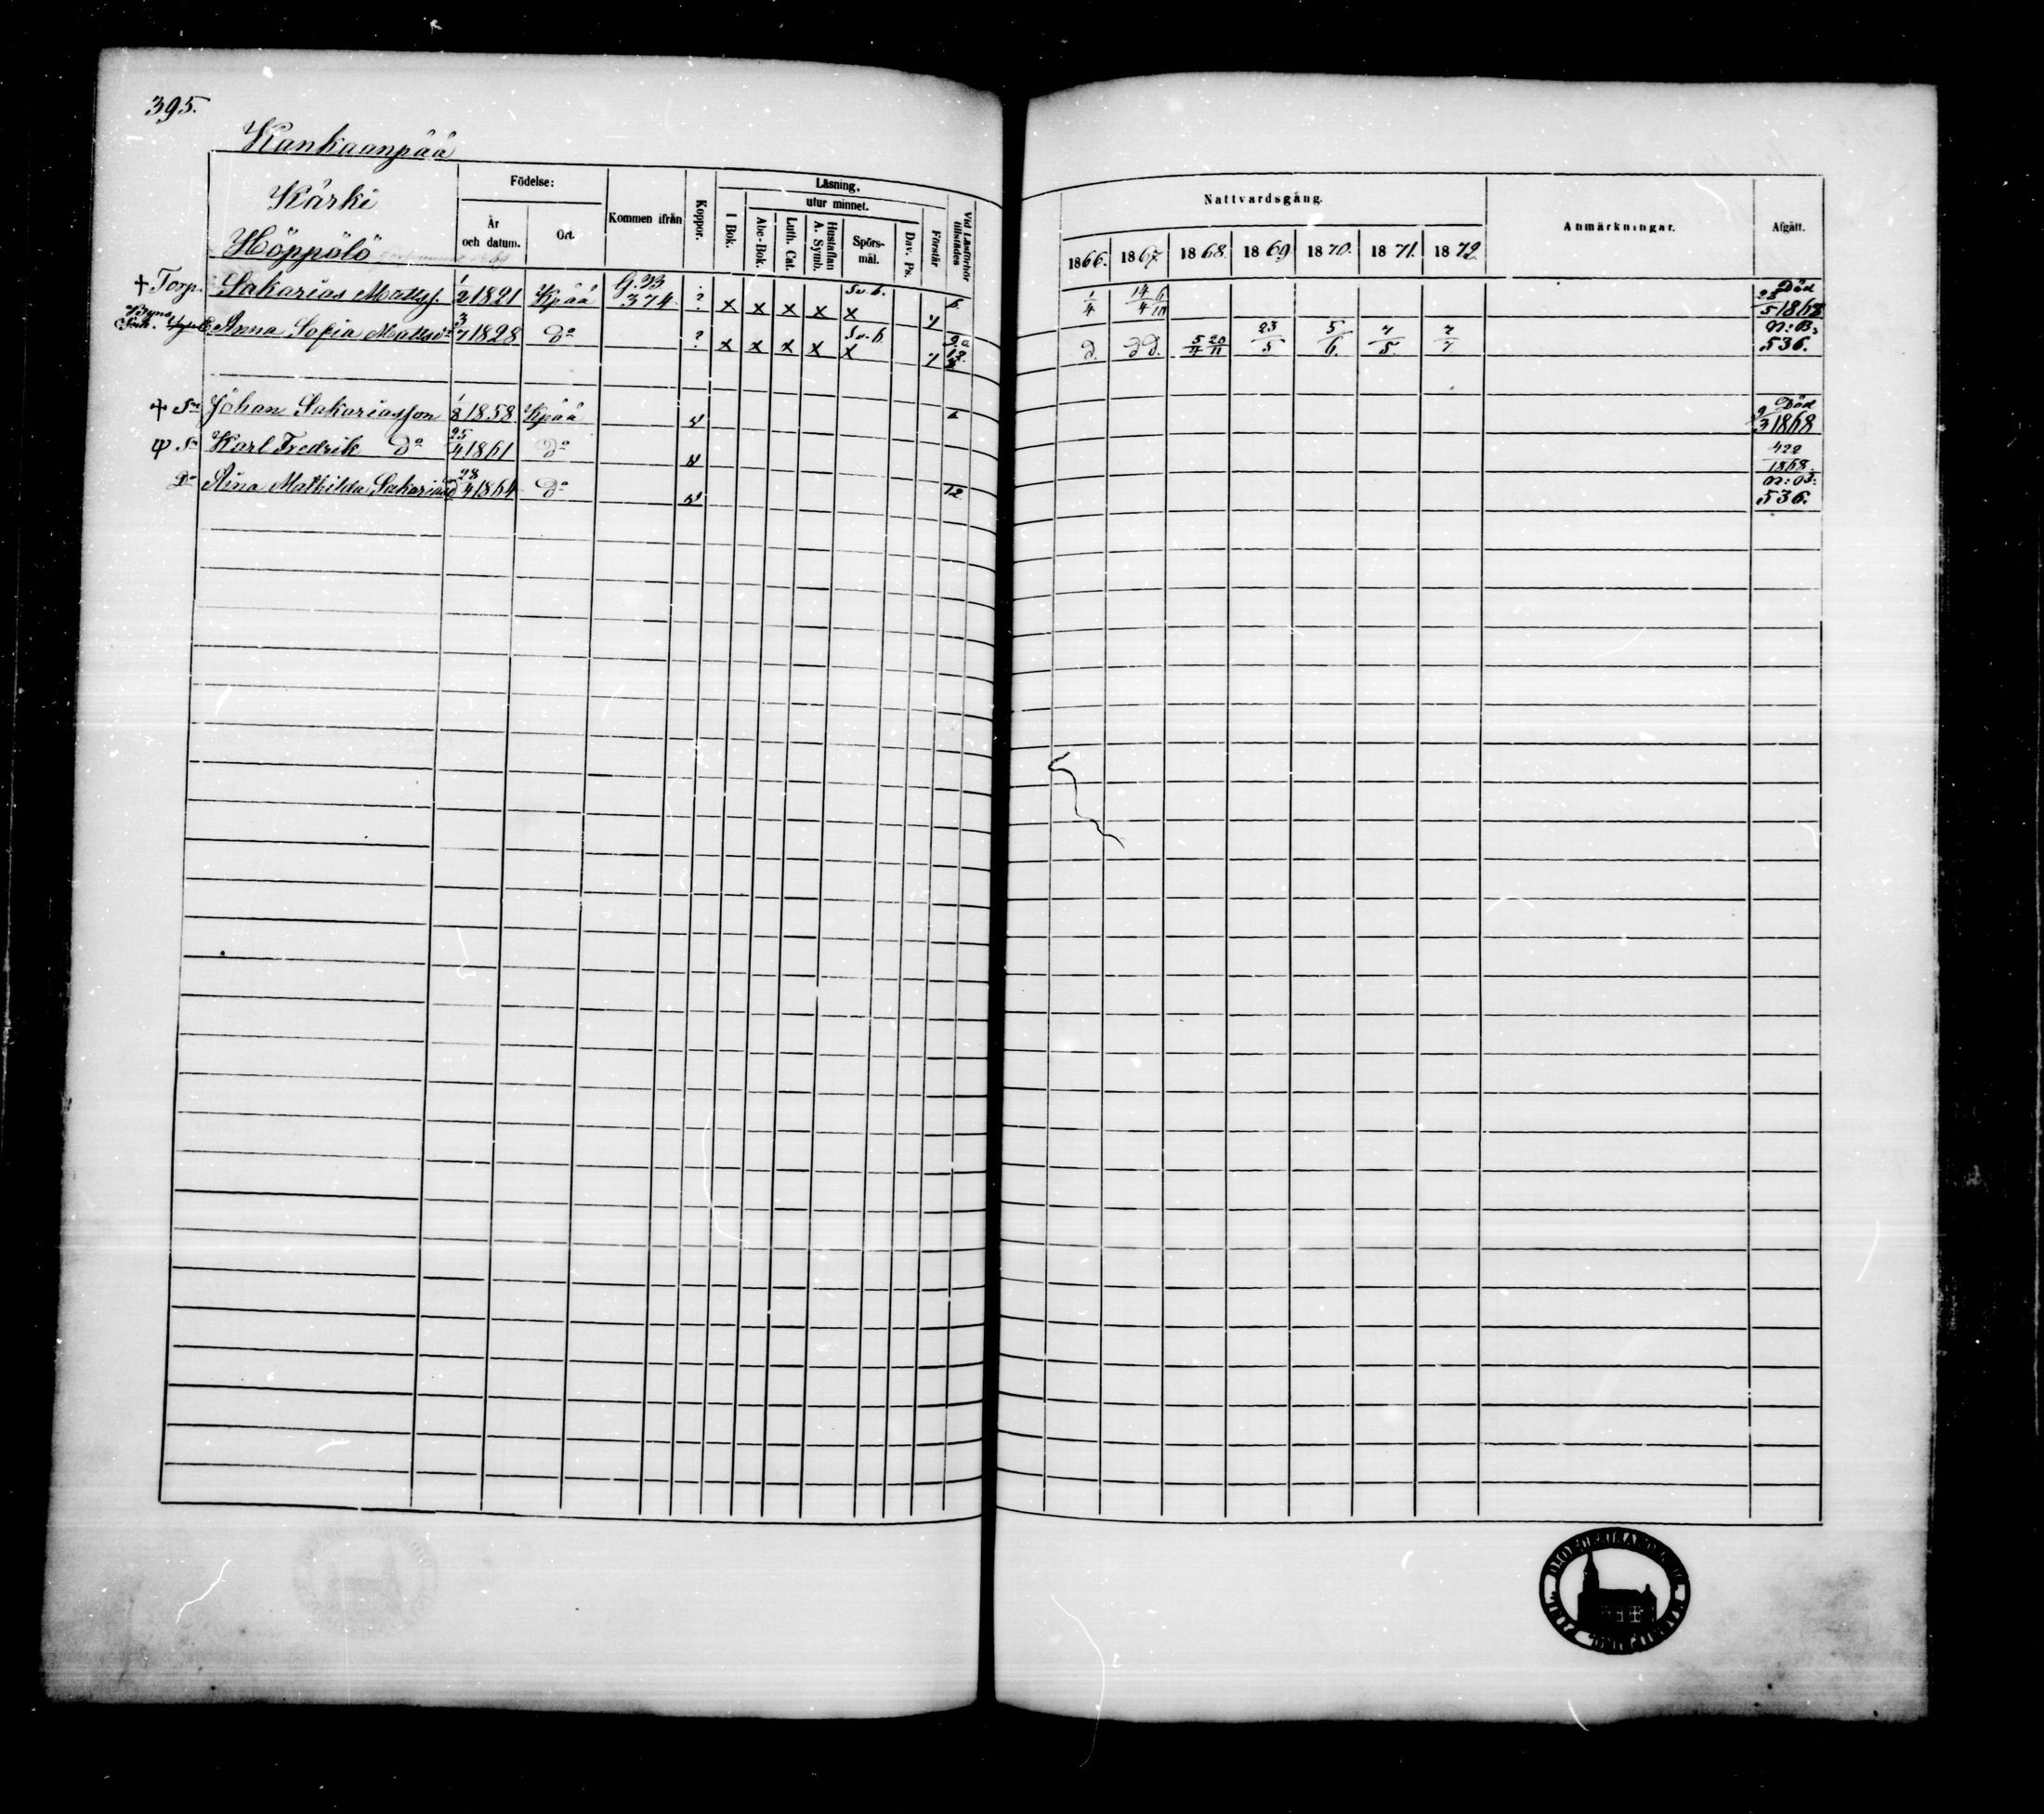 395.
Kankaanpää
Kärki
Höppölö
Födelse:
År och datum.
Ort.
Kommen ifrån
Koppor.
Läsning,
I Bok.
utur minnet.
Abc-Bok.
Luth. Cat.
Hustaflan A. Symb.
Spörs-mål.
Dav. Ps.
Förstår
Vid Läsförhör tillstädes
Nattvardsgång.
1866. 1867. 1868. 1869. 1870. 1871. 1872.
Anmärkningar.
Afgått.
† Torp. Sakarias Mattss. 1/2 1821 Kpää G. B. 374 ? x x x x Sv. b. x y 6 1/4 14/4 6/10 Död 23/5 1868
Anna Sofia Mattsd:r 3/7 1828 D:o ? x x x x Sv. b. x y d. d d. 5/4 20/11 23/5 5/6. 7/5. 7/7 N: B: 536.
† Sn Johan Sakariasson 1/8 1858 Kpää v Död 9/3 1868
ψ Sn Karl Fredrik D:o 25/4 1861 D:o v 422 1868
Dr Aina Mathilda Sakariasd 28/4 1864 D:o v 12 N: B: 536.